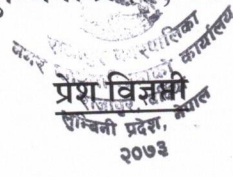 नगरपालिका
नगर कार्यालय
प्रेश विज्ञप्ती
राजापुर,
लुम्बिनी प्रदेश, नेपाल
२०७३